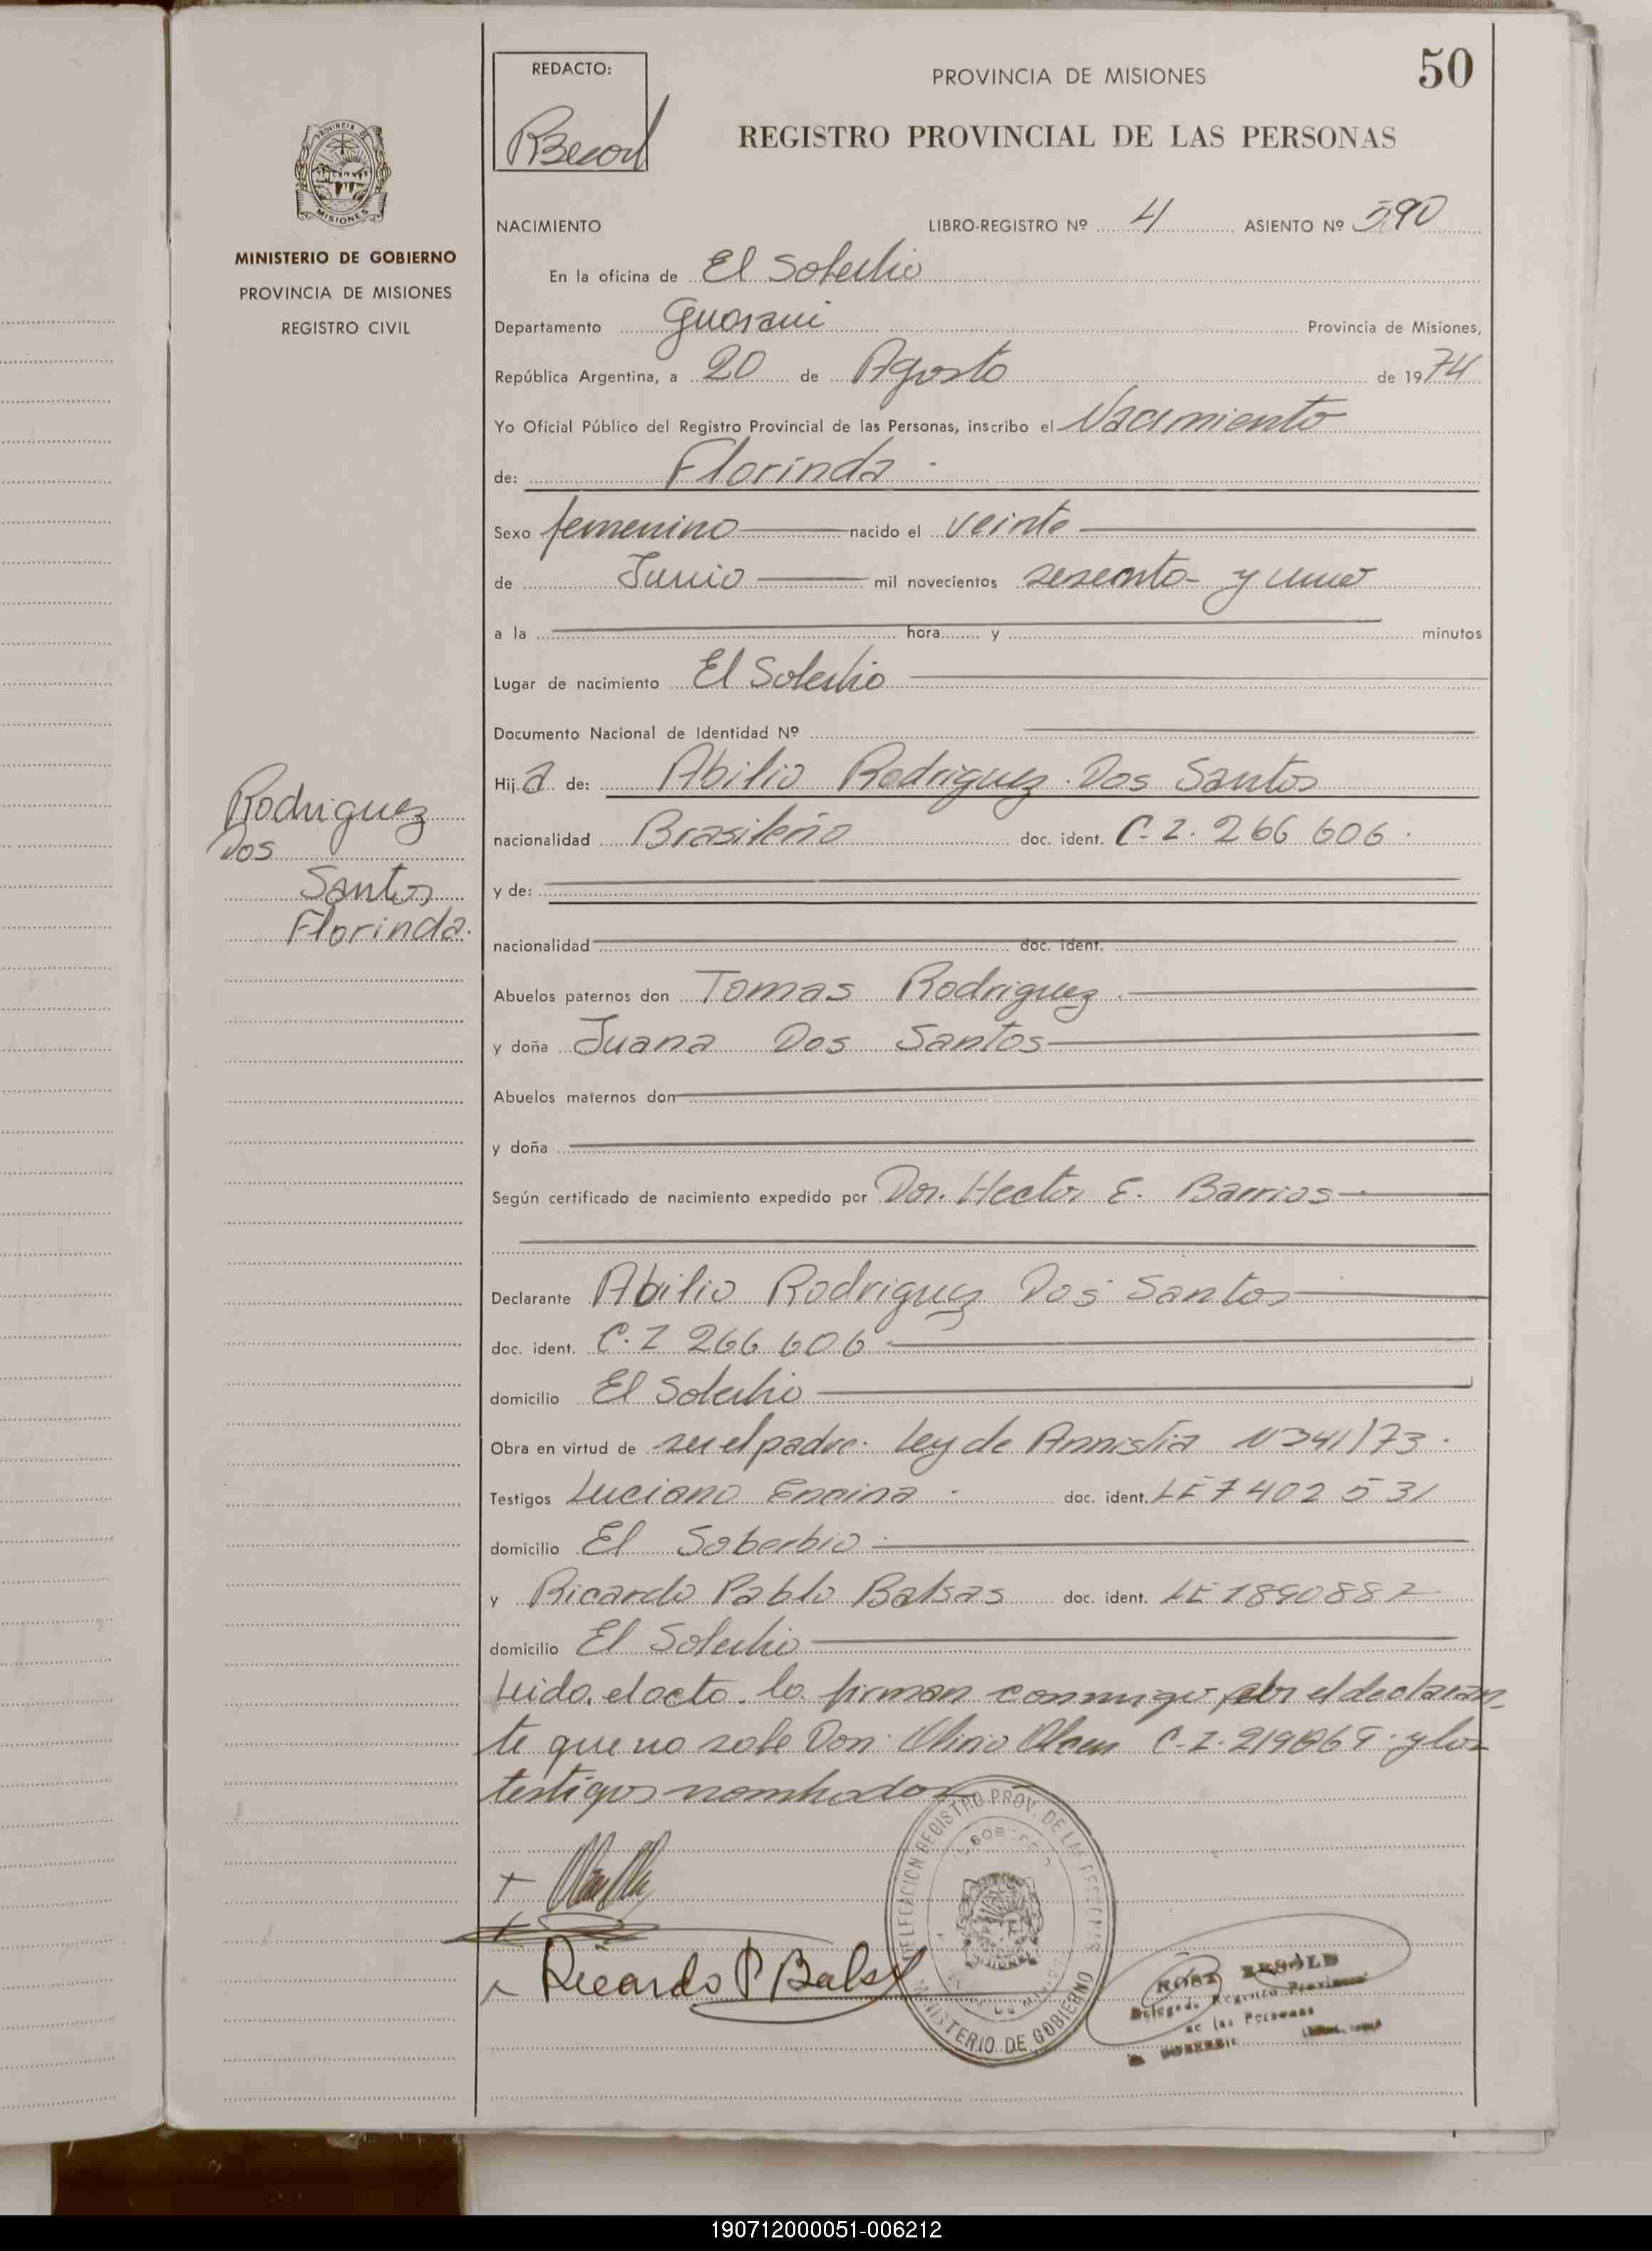 50
REDACTO:
PROVINCIA DE MISIONES
REGISTRO PROVINCIAL DE LAS PERSONAS
PROVINCIA DE MISIONES
MINISTERIO DE GOBIERNO
PROVINCIA DE MISIONES
REGISTRO CIVIL
NACIMIENTO LIBRO-REGISTRO Nº 4 ASIENTO Nº 590
En la oficina de El Soberbio
Departamento Guarani Provincia de Misiones,
República Argentina, a 20 de Agosto de 1974
Yo Oficial Público del Registro Provincial de las Personas, inscribo el Nacimiento
de: Florinda
Sexo femenino nacido el veinte
de Junio mil novecientos sesenta y uno
a la hora y minutos
Lugar de nacimiento El Soberbio
Documento Nacional de Identidad Nº
Hija de: Abilio Rodriguez Dos Santos
nacionalidad Brasileño doc. ident. C.I. 266 606.
y de:
nacionalidad doc. ident.
Rodriguez
Dos
Santos
Florinda.
Abuelos paternos don Tomas Rodriguez.
y doña Juana Dos Santos
Abuelos maternos don
y doña
Según certificado de nacimiento expedido por Dor. Hector E. Barrios
Declarante Abilio Rodriguez Dos Santos
doc. ident. C.I 266 606
domicilio El Soberbio
Obra en virtud de ser el padre. Ley de Amnistia N 341/73.
Testigos Luciano Encina doc. ident. LE 7 402 531
domicilio El Soberbio
y Ricardo Pablo Balsas doc. ident. LE 1890882
domicilio El Soberbio
Leido el acto lo firman conmigo por el declaran
te que no sabe Don: C.I. y los
testigos nombrados
Ricardo P Balsa
DELEGACION REGISTRO PROV. DE LAS PERSONAS
MINISTERIO DE GOBIERNO
Delegada Registro Provincial
de las Personas
190712000051-006212